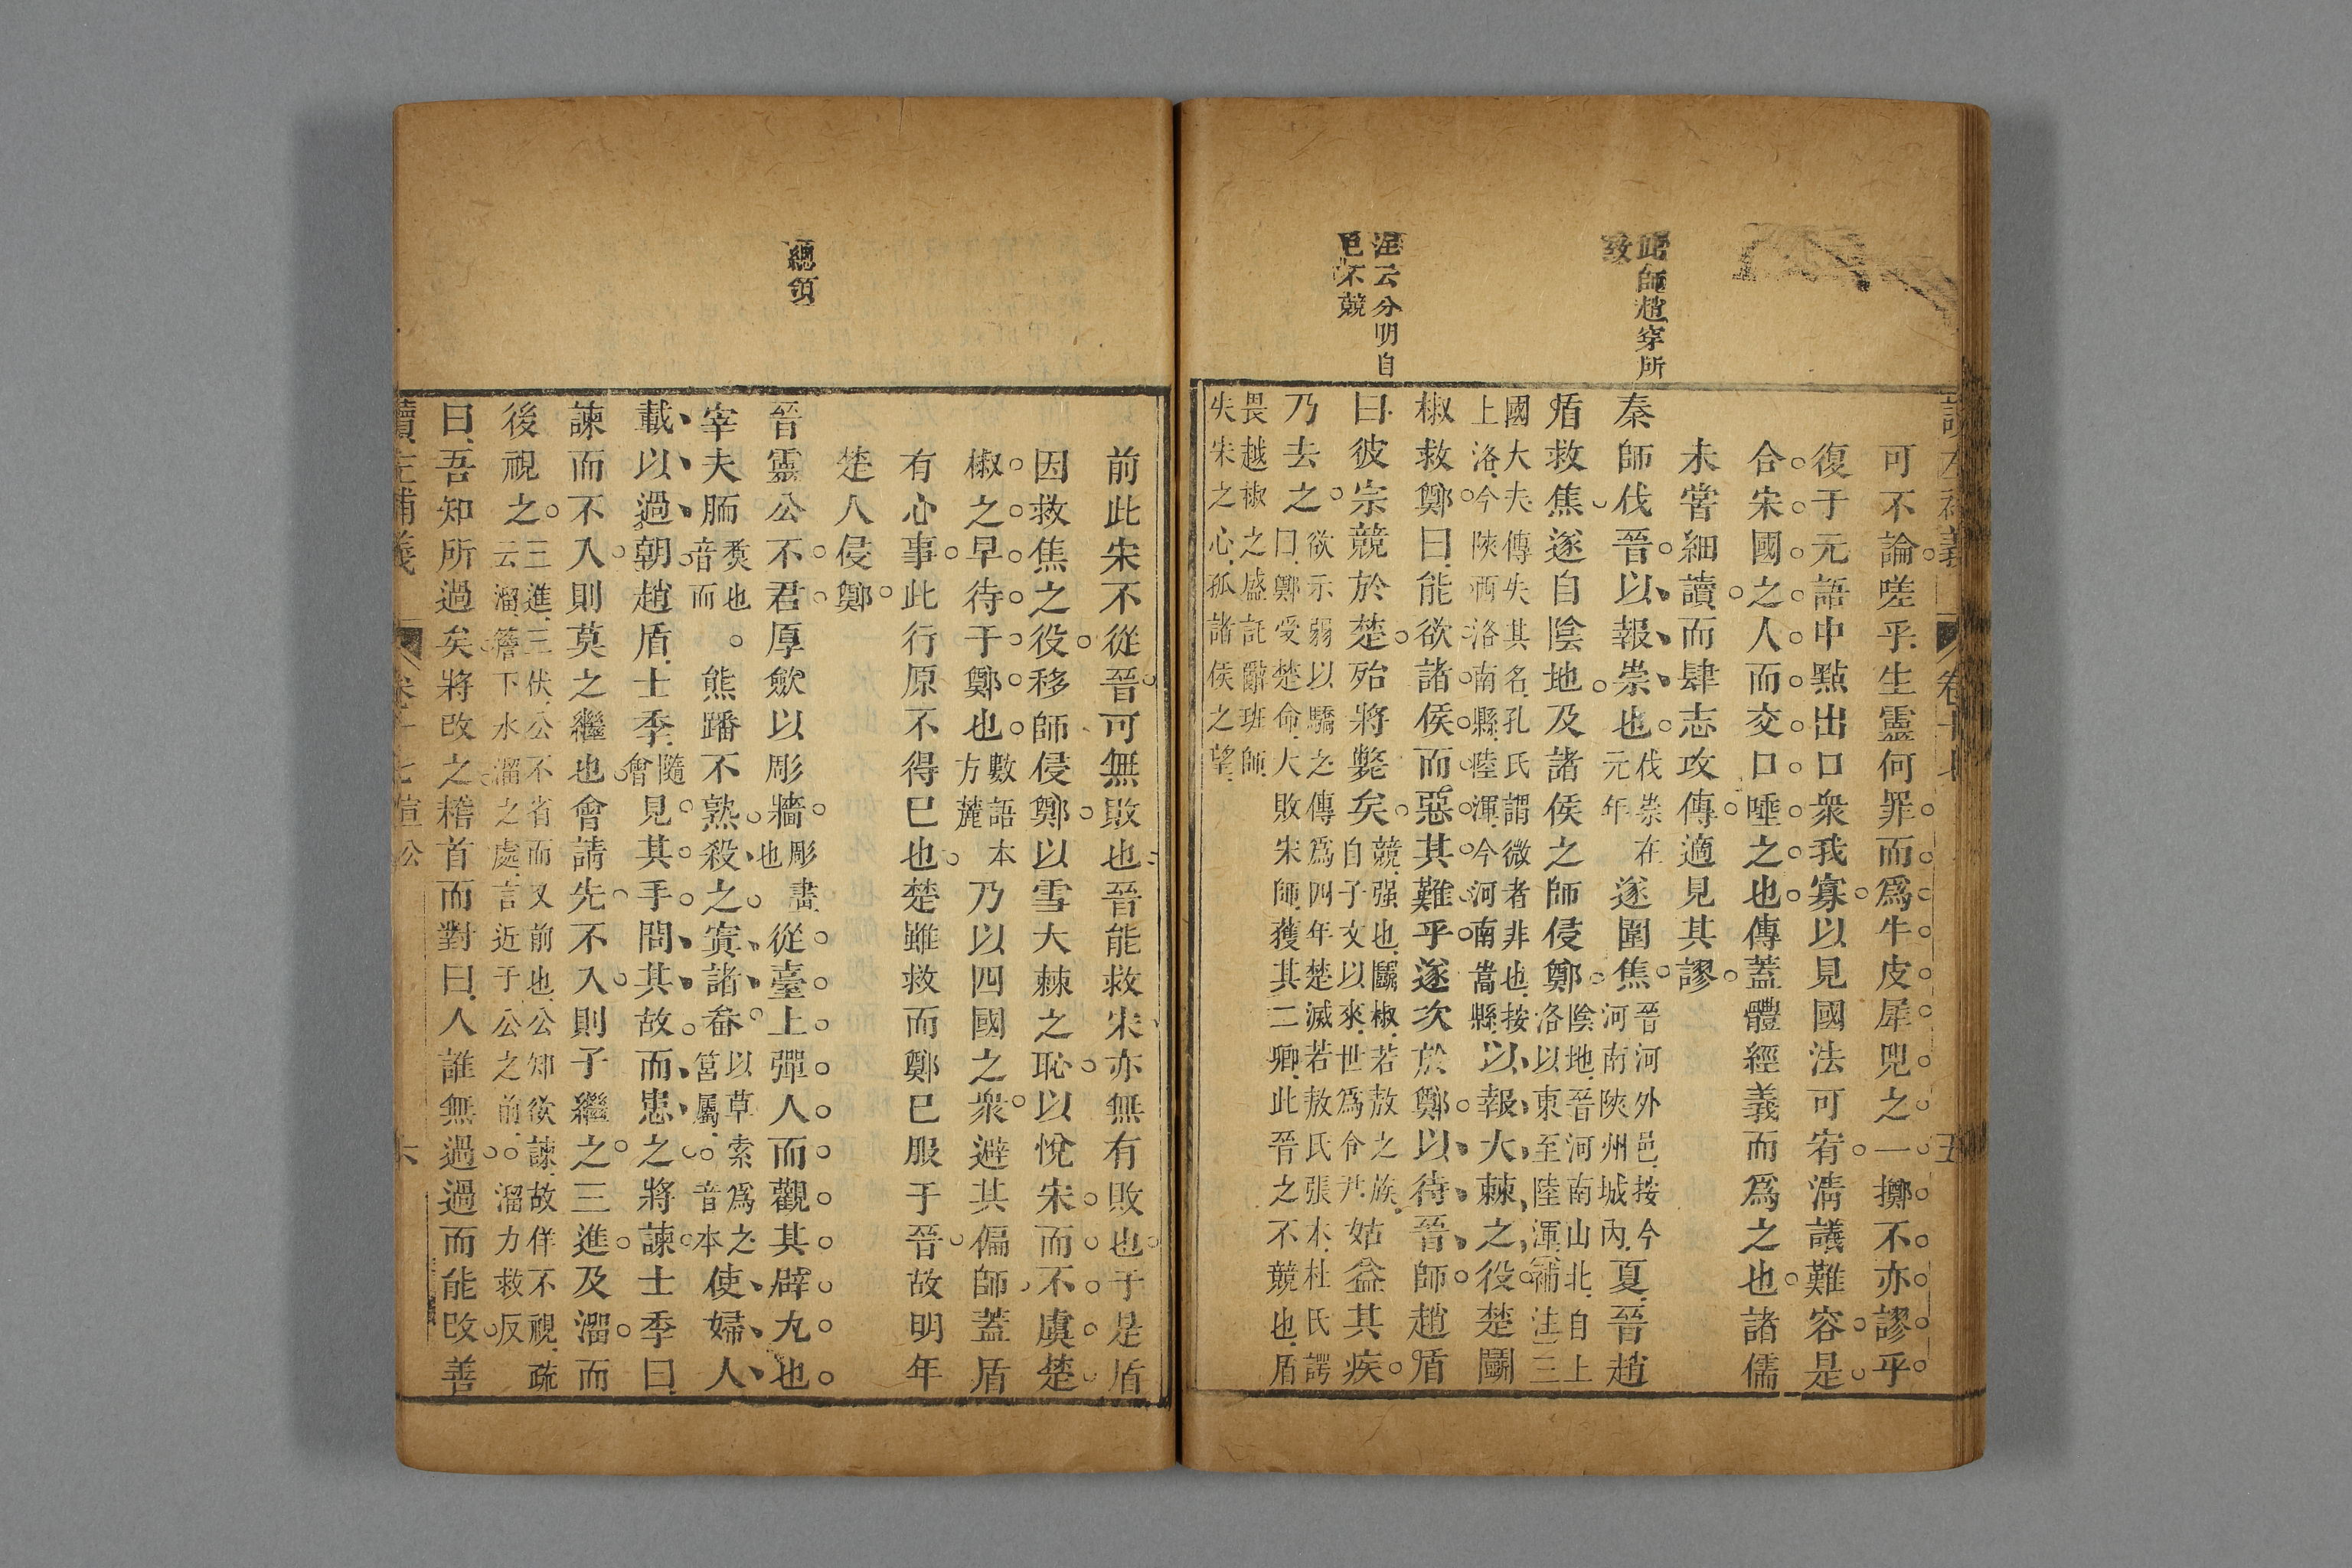 讀左補義 卷十七 五
此師趙穿所
致
注云分明自
己不競
可不論嗟乎生靈何罪而爲牛皮犀兕之一擲不亦謬乎
復于元語中點出口衆我寡以見國法可宥清議難容是
合宋國之人而交口唾之也傳蓋體經義而爲之也諸儒
未嘗細讀而肆志攻傳適見其謬
秦師伐晉以報崇也伐崇在元年遂圍焦晉河外邑按今河南陝州城內夏晉趙
盾救焦遂自陰地及諸侯之師侵鄭陰地晉河南山北自上洛以東至陸渾補注三
國大夫傳失其名孔氏謂微者非也按上洛今陝西洛南縣陸渾今河南嵩縣以報大棘之役楚鬭
椒救鄭曰能欲諸侯而惡其難乎遂次於鄭以待晉師趙盾
曰彼宗競於楚殆將斃矣競强也鬭椒若敖之族自子文以來世爲令尹姑益其疾
乃去之欲示弱以驕之傳爲四年楚滅若敖氏張本杜氏諤曰鄭受楚命大敗宋師獲其二卿此晉之不競也盾
畏越椒之盛託辭班師失宋之心孤諸侯之望
總領
前此宋不從晉可無敗也晉能救宋亦無有敗也于是盾
因救焦之役移師侵鄭以雪大棘之恥以悅宋而不虞楚
椒之早待于鄭也數語本方麓乃以四國之衆避其偏師蓋盾
有心事此行原不得已也楚雖救而鄭已服于晉故明年
楚人侵鄭
晉靈公不君厚斂以彫牆彫畫也從臺上彈人而觀其辟丸也
宰夫胹煑也音而熊蹯不熟殺之寘諸畚以草索爲之筥屬音本使婦人
載以過朝趙盾士季隨會見其手問其故而患之將諫士季曰
諫而不入則莫之繼也會請先不入則子繼之三進及溜而
後視之三進三伏公不省而又前也公知欲諫故佯不視疏云溜簷下水溜之處言近于公之前溜力救反
曰吾知所過矣將改之稽首而對曰人誰無過過而能改善
讀左補義 卷十七 宣公 六